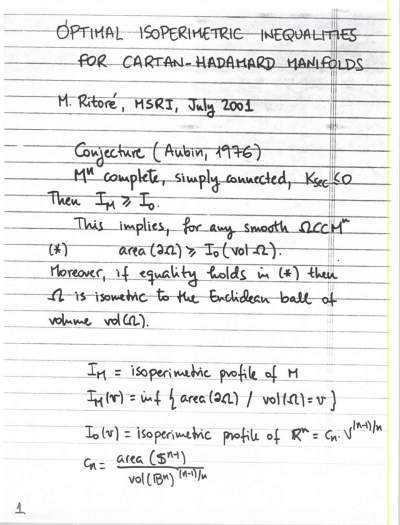 OPTIMAL ISOPERIMETRIC INEQUALITIES
FOR CARTAN-HADAMARD MANIFOLDS
M. Ritoré, MSRI, July 2001
Conjecture (Aubin, 1976)
Mⁿ complete, simply connected, Ksec ≤ 0
Then I_M ≥ I₀.
This implies, for any smooth Ω⊂⊂Mⁿ
(*) area(∂Ω) ≥ I₀(vol Ω).
Moreover, if equality holds in (*) then
Ω is isometric to the Euclidean ball of
volume vol(Ω).
I_M = isoperimetric profile of M
I_M(v) = inf { area(∂Ω) / vol(Ω) = v }
I₀(v) = isoperimetric profile of ℝⁿ = cₙ · v^(n-1)/n
cₙ = area(𝕊ⁿ⁻¹) / vol(𝔹ⁿ)^(n-1)/n
1